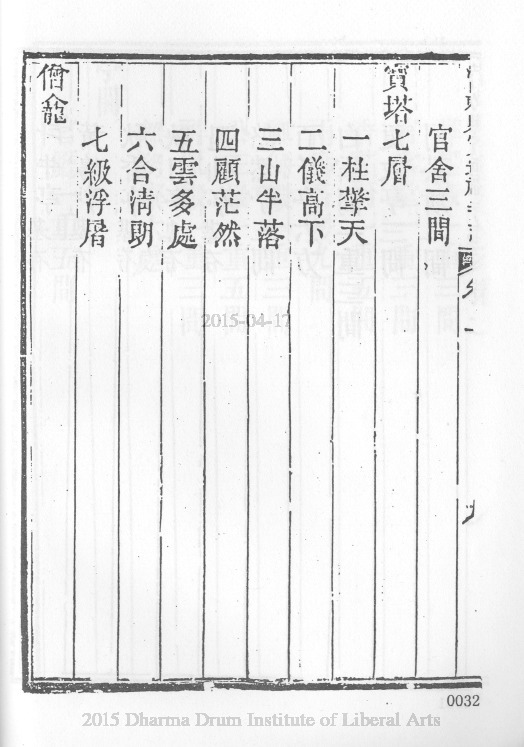 官舍三間
寳塔七層
一柱擎天
二儀高下
三山半落
四顧茫然
五雲多處
六合清朗
七級浮屠
僧龕
2015-04-17
0032
2015 Dharma Drum Institute of Liberal Arts